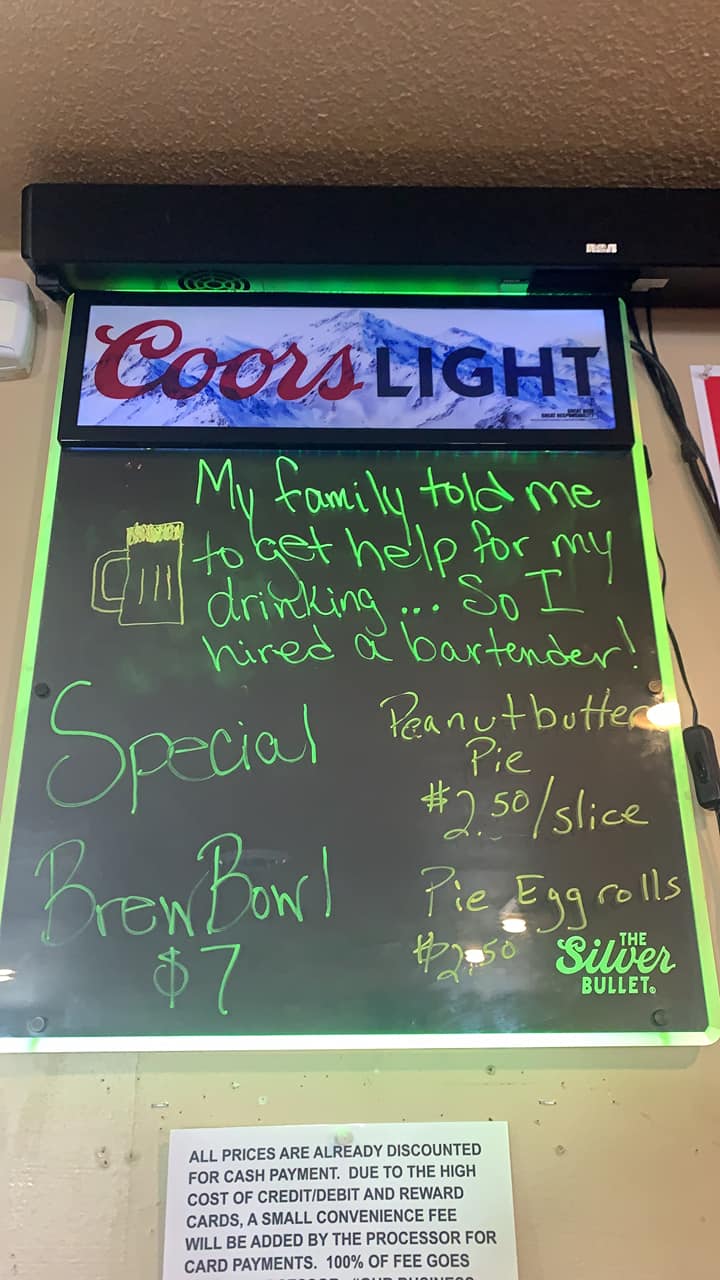 RCA
Coors LIGHT
GREAT BEER
GREAT RESPONSIBILITY
My family told me
to get help for my
drinking... So I
hired a bartender!
Special
Brew Bowl
$7
Peanutbutter
Pie
$2.50/slice
Pie Eggrolls
$2.50
THE
Silver
BULLET®
ALL PRICES ARE ALREADY DISCOUNTED
FOR CASH PAYMENT. DUE TO THE HIGH
COST OF CREDIT/DEBIT AND REWARD
CARDS, A SMALL CONVENIENCE FEE
WILL BE ADDED BY THE PROCESSOR FOR
CARD PAYMENTS. 100% OF FEE GOES
"OUR BUSINESS